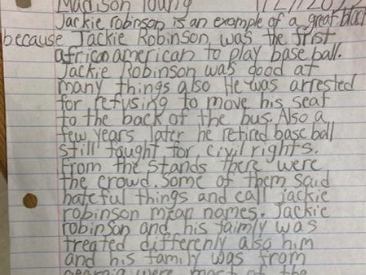 Madison Young
Jackie robinson is an example of a great black
because Jackie Robinson was the first
african american to play base ball.
Jackie Robinson was good at
many things also He was arrested
for refusing to move his seat
to the back of the bus. Also a
few years later he retired base ball
still fought for civil rights.
From the stands there were
the crowd. Some of them said
hateful things and call jackie
robinson mean names. Jackie
robinson and his faimly was
treated differenly also him
and his family was from
georgia were most of the